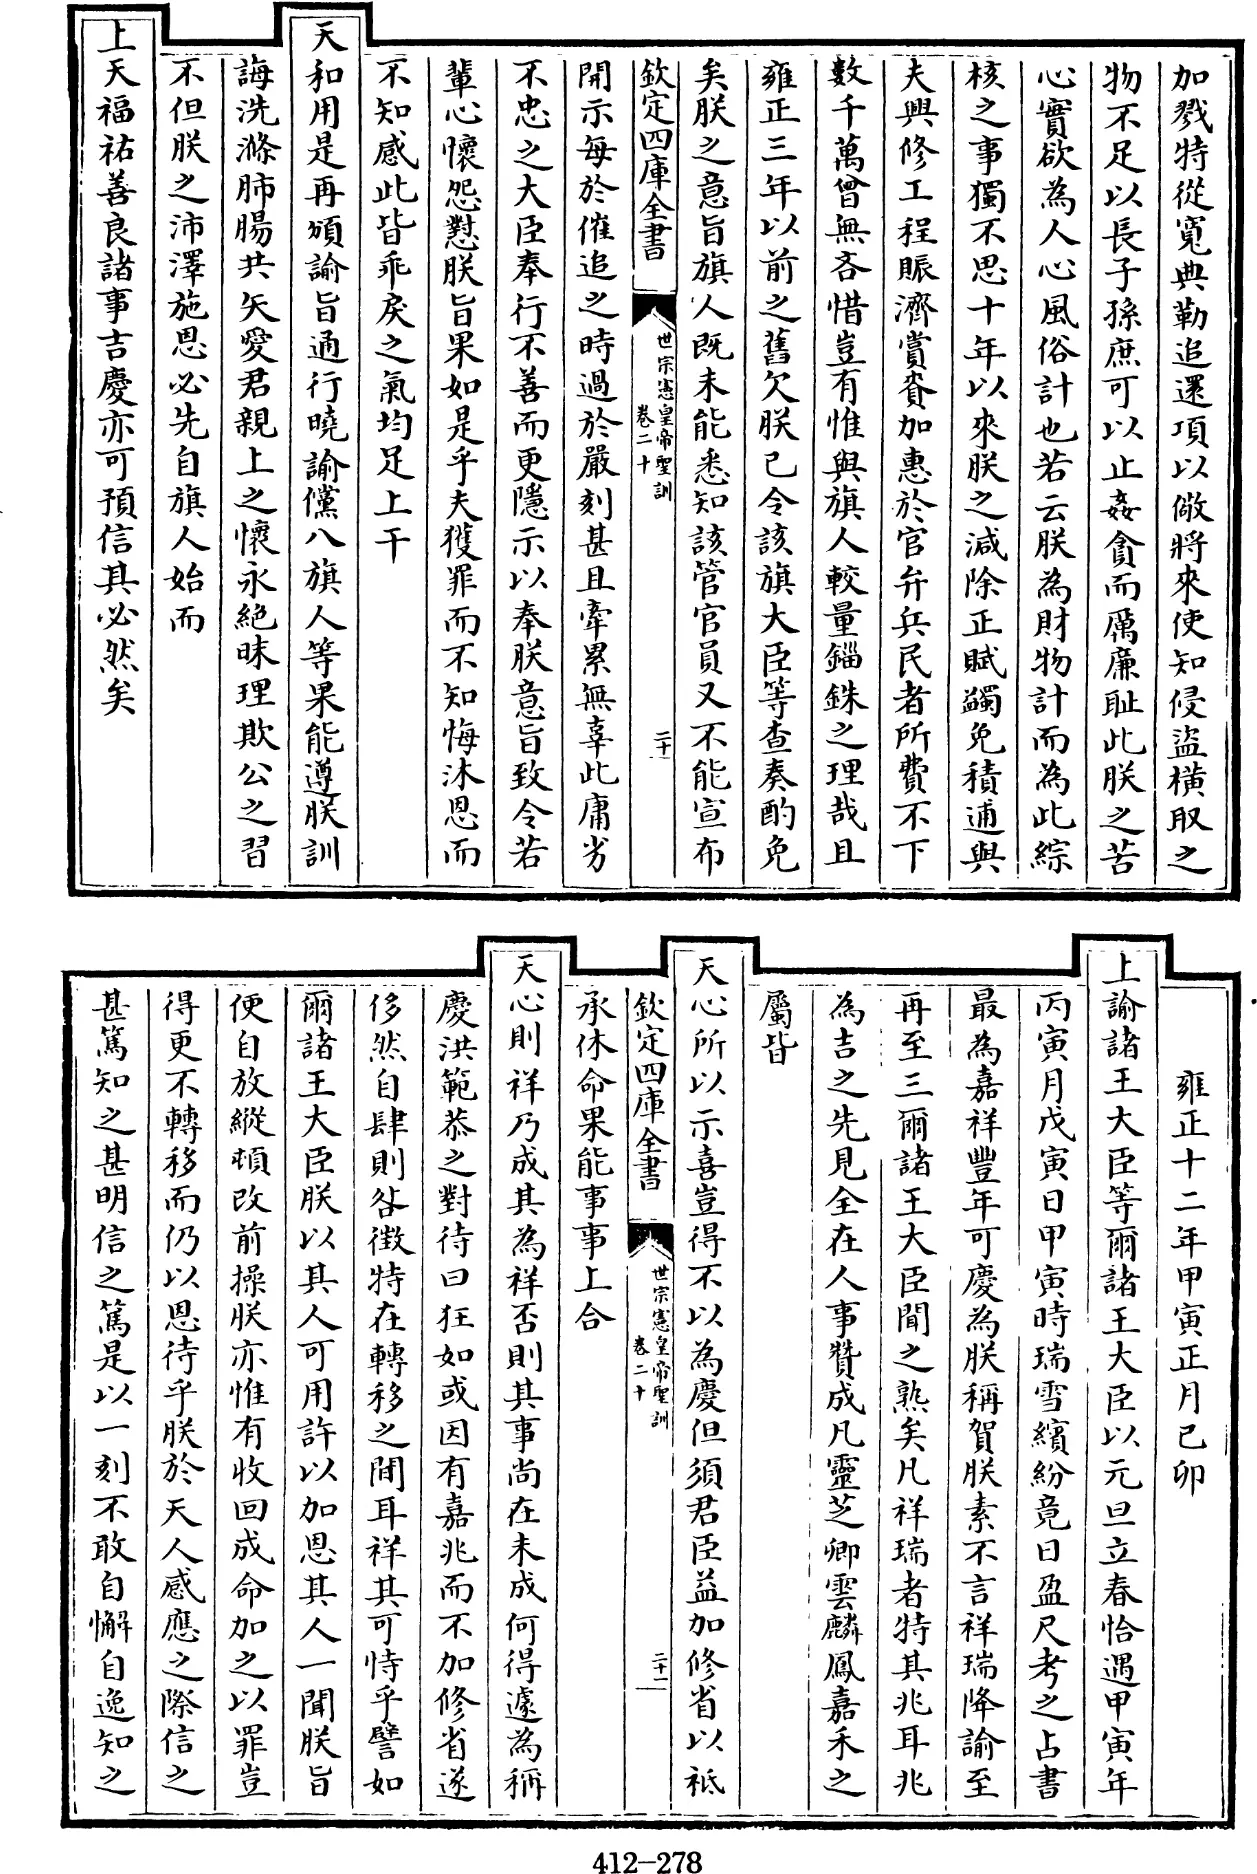 加戮特從寛典勒追還項以儆將來使知侵盜橫取之
物不足以長子孫庶可以止姦貪而厲廉耻此朕之苦
心實欲為人心風俗計也若云朕為財物計而為此綜
核之事獨不思十年以來朕之減除正賦蠲免積逋與
夫興修工程賑濟賞賚加惠於官弁兵民者所費不下
數千萬曾無吝惜豈有惟與旗人較量錙銖之理哉且
雍正三年以前之舊欠朕已令該旗大臣等查奏酌免
矣朕之意旨旗人既未能悉知該管官員又不能宣布
欽定四庫全書
世宗憲皇帝聖訓
卷二十
二十
開示每於催追之時過於嚴刻甚且牽累無辜此庸劣
不忠之大臣奉行不善而更隱示以奉朕意旨致令若
輩心懷怨懟朕旨果如是乎夫獲罪而不知悔沐恩而
不知感此皆乖戾之氣均足上干
天和用是再頒諭旨通行曉諭儻八旗人等果能遵朕訓
誨洗滌肺腸共矢愛君親上之懷永絕昧理欺公之習
不但朕之沛澤施恩必先自旗人始而
上天福祐善良諸事吉慶亦可預信其必然矣
雍正十二年甲寅正月己卯
上諭諸王大臣等爾諸王大臣以元旦立春恰遇甲寅年
丙寅月戊寅日甲寅時瑞雪繽紛竟日盈尺考之占書
最為嘉祥豐年可慶為朕稱賀朕素不言祥瑞降諭至
再至三爾諸王大臣聞之熟矣凡祥瑞者特其兆耳兆
為吉之先見全在人事贊成凡靈芝卿雲麟鳳嘉禾之
屬皆
天心所以示喜豈得不以為慶但須君臣益加修省以祗
欽定四庫全書
世宗憲皇帝聖訓
卷二十
二十一
承休命果能事事上合
天心則祥乃成其為祥否則其事尚在未成何得遽為稱
慶洪範恭之對待曰狂如或因有嘉兆而不加修省遂
侈然自肆則咎徵特在轉移之間耳祥其可恃乎譬如
爾諸王大臣朕以其人可用許以加恩其人一聞朕旨
便自放縱頓改前操朕亦惟有收回成命加之以罪豈
得更不轉移而仍以恩待乎朕於天人感應之際信之
甚篤知之甚明信之篤是以一刻不敢自懈自逸知之
412-278